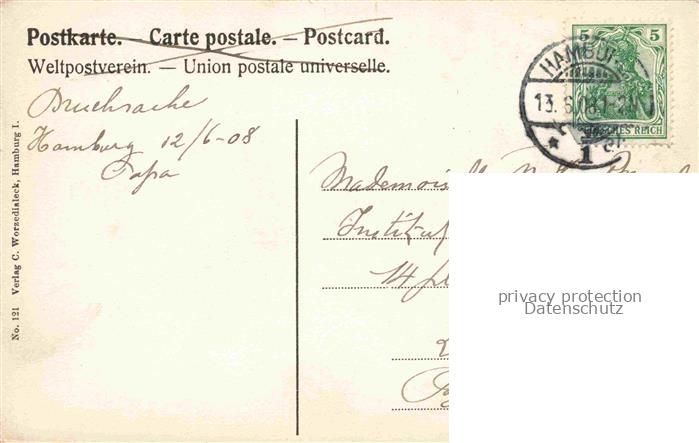 Postkarte. — Carte postale. — Postcard.
Weltpostverein. — Union postale universelle.
Drucksache
Hamburg 12/6-08
Papa
No. 121 Verlag C. Worzedialeck, Hamburg I.
5 5
DEUTSCHES REICH
HAMBURG
13.6.08.1-2N
* 1
Mademois
Institut
14
privacy protection
Datenschutz